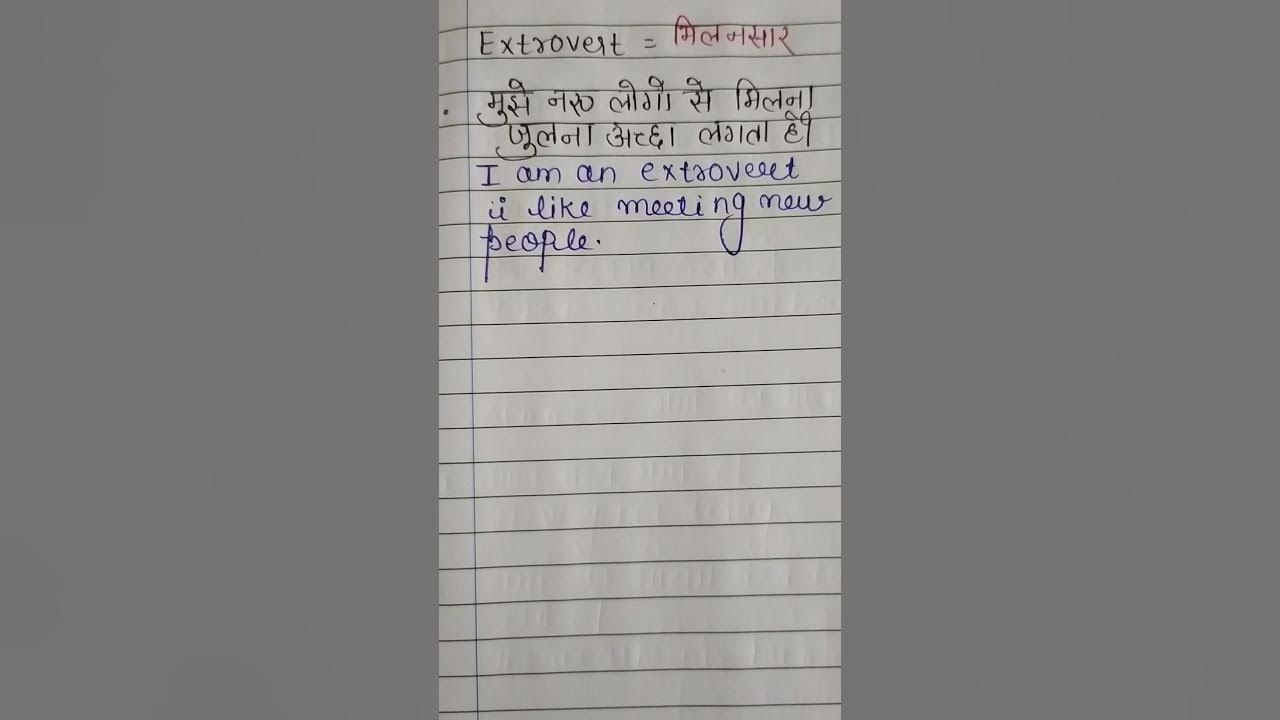 Extrovert = मिलनसार
. मुझे नए लोगो से मिलना
जुलना अच्छा लगता है।
I am an extrovert
i like meeting new
people.